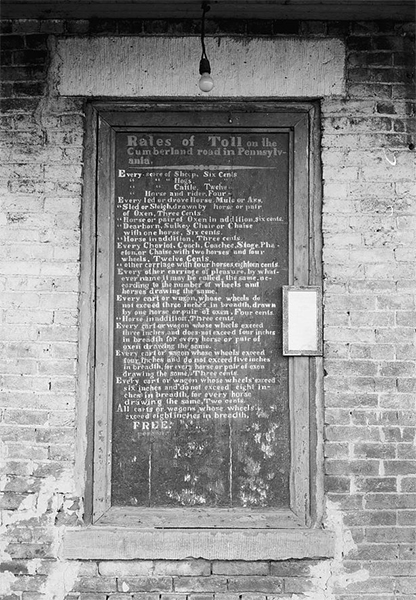 Rates of Toll on the
Cumberland road in Pennsylv-
ania.
Every score of Sheep, Six Cents
" " " Hogs,
" " " Cattle, Twelve
" Horse and rider, Four
Every led or drove Horse, Mule or Ass,
" Sled or Sleigh, drawn by horse or pair
of Oxen, Three Cents
" Horse or pair of Oxen in addition, six cents.
" Dearborn, Sulkey Chair or Chaise
with one horse, Six cents.
" Horse in addition, Three cents
Every Chariot, Coach, Coachee, Stage, Pha-
eton, or Chaise with two horses and four
wheels, Twelve Cents
" other carriage with four horses, eighteen cents.
Every other carriage of pleasure, by what-
ever name it may be called, the same, ac-
cording to the number of wheels and
horses drawing the same.
Every cart or wagon, whose wheels do
not exceed three inches in breadth, drawn
by one horse or pair of oxen, Four cents.
" Horse in addition, Three cents.
Every cart or wagon whose wheels exceed
three inches, and does not exceed four inches
in breadth for every horse or pair of
oxen drawing the same.
Every cart or wagon whose wheels exceed
four inches and do not exceed five inches
in breadth, for every horse or pair of oxen
drawing the same, Three cents.
Every cart or wagon whose wheels exceed
six inches and do not exceed eight in-
ches in breadth, for every horse
drawing the same, Two cents.
All carts or wagons whose wheels
exceed eight inches in breadth,
FREE.